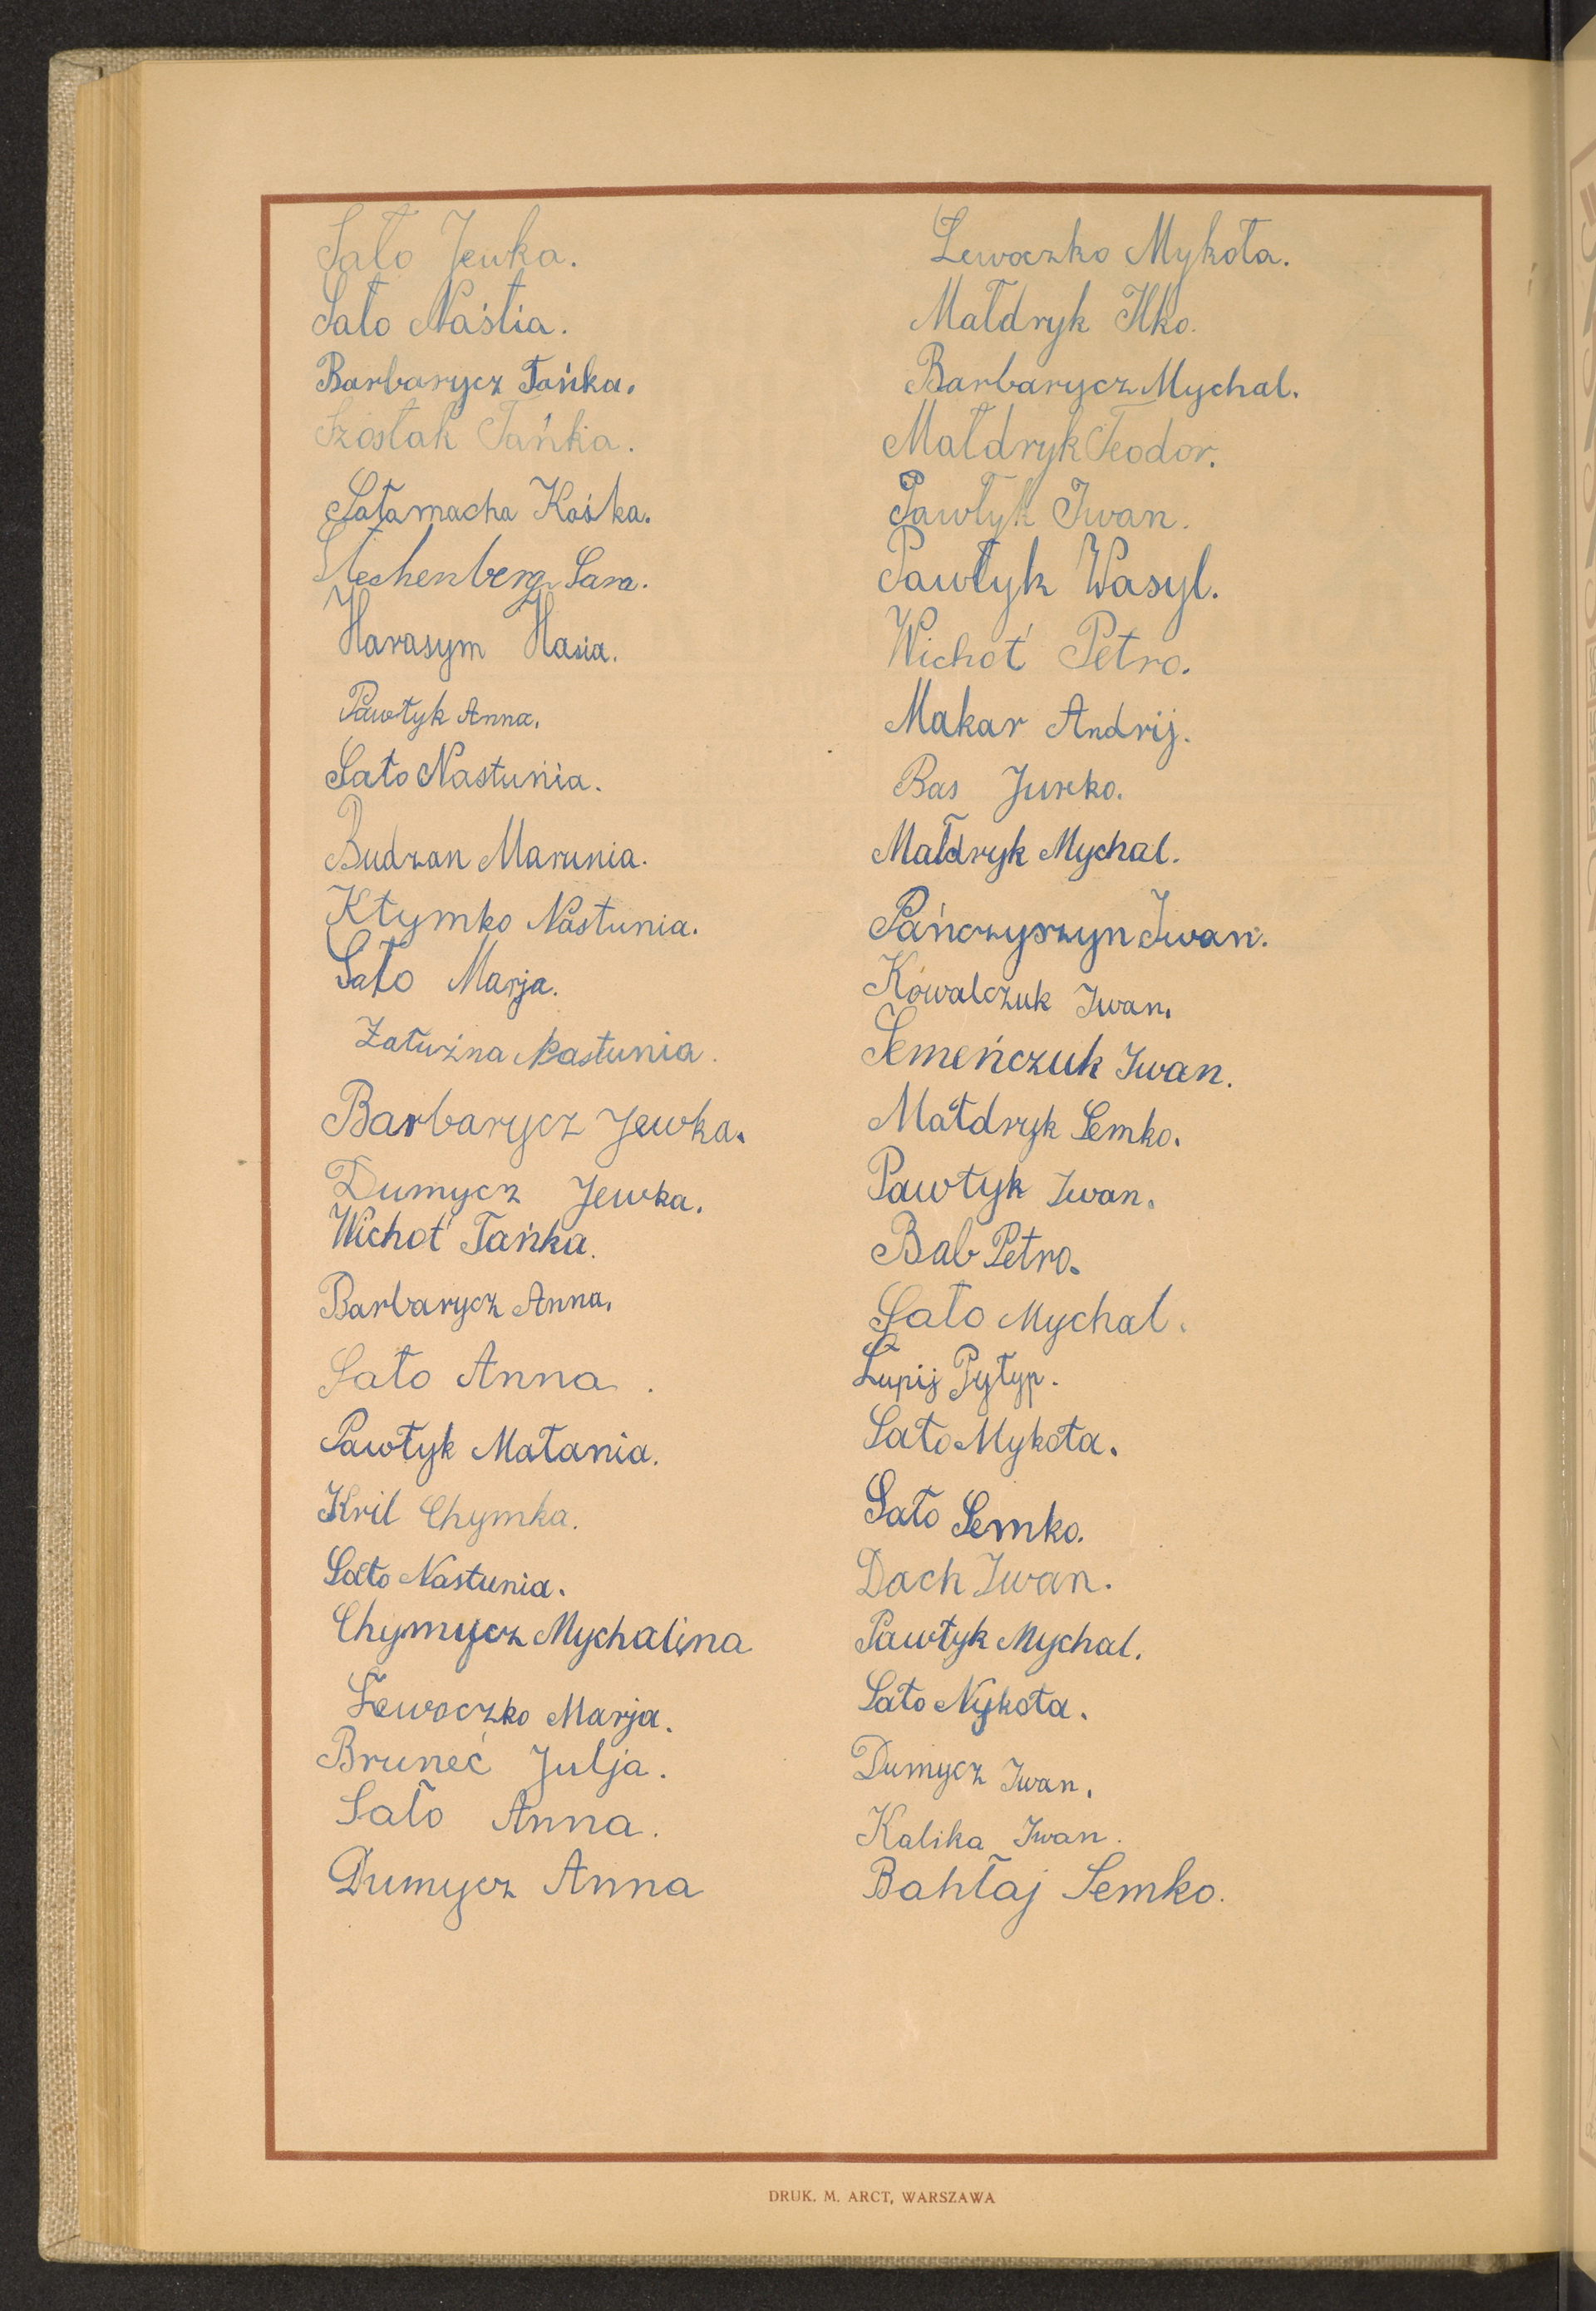 Sało Jewka.
Sało Naśtia.
Barbarycz Tańka.
Szostak Tańka.
Sałamacha Kaśka.
Stechenberg Sara.
Harasym Hasia.
Pawłyk Anna.
Sało Nastunia.
Budzan Marunia.
Kłymko Nastunia.
Sało Marja.
Załużna Nastunia.
Barbarycz Jewka.
Dumycz Jewka.
Wichot' Tańka.
Barbarycz Anna.
Sało Anna.
Pawłyk Małania.
Kril Chymka.
Sało Nastunia.
Chymycz Mychalina
Lewoczko Marja.
Bruneć Julja.
Sało Anna.
Dumycz Anna
Lewoczko Mykoła.
Małdryk Ilko.
Barbarycz Mychal.
Małdryk Teodor.
Pawłyk Iwan.
Pawłyk Wasyl.
Wichot' Petro.
Makar Andrij.
Bas Jurko.
Małdryk Mychal.
Pańczyszyn Iwan.
Kowalczuk Iwan.
Semeńczuk Iwan.
Małdryk Semko.
Pawłyk Iwan.
Bab Petro.
Sało Mychal.
Łupij Pyłyp.
Sało Mykoła.
Sało Semko.
Dach Iwan.
Pawłyk Mychal.
Sało Nykoła.
Dumycz Iwan.
Kalika Iwan.
Bahłaj Semko.
DRUK. M. ARCT, WARSZAWA